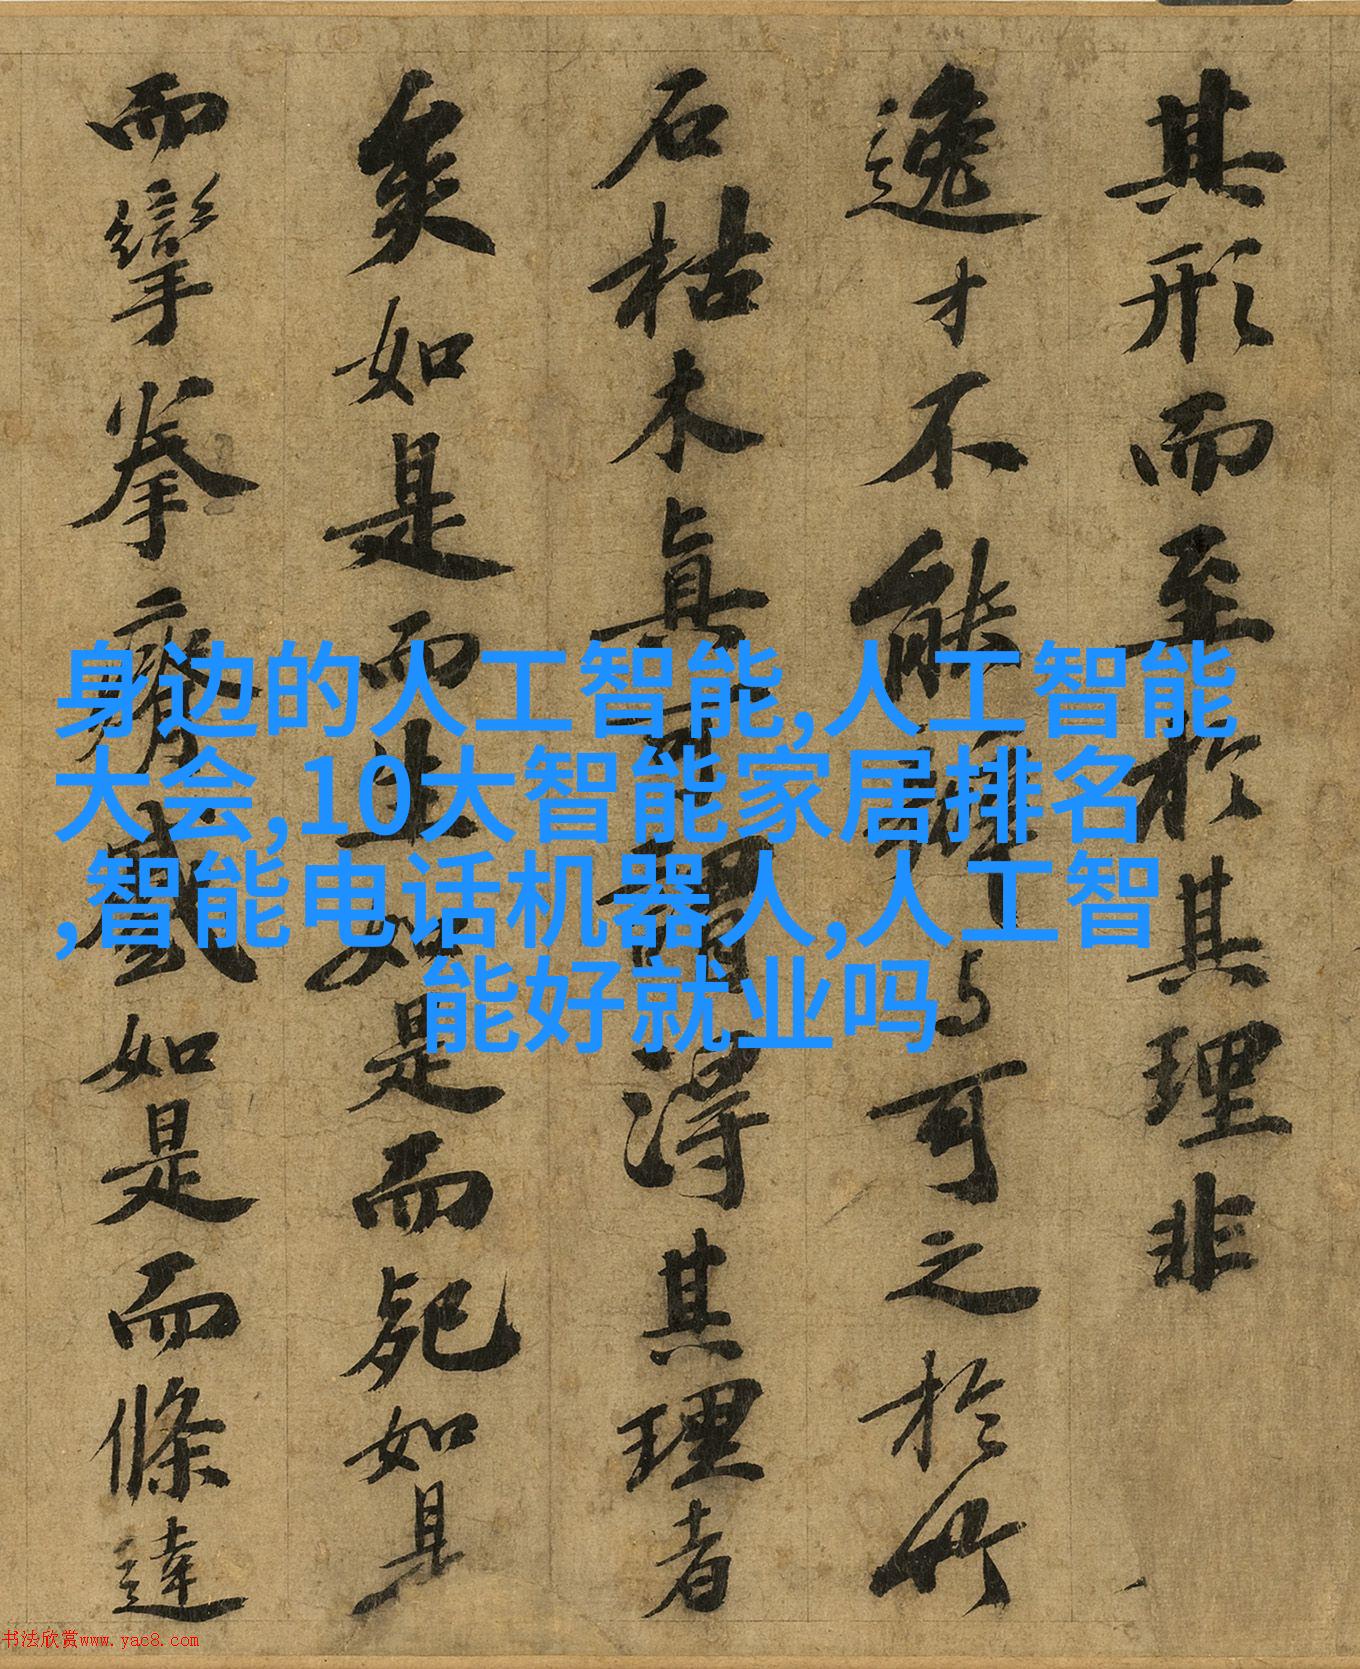 其形而至於其理非
逸才不能辨与可之於竹
石枯木真可謂得其理者
矣如是而生如是而死如是
而攣拳瘠蹙如是而條達
身边的人工智能,人工智能
大会,10大智能家居排名
,智能电话机器人,人工智
能好就业吗
书法欣赏www.yac8.com